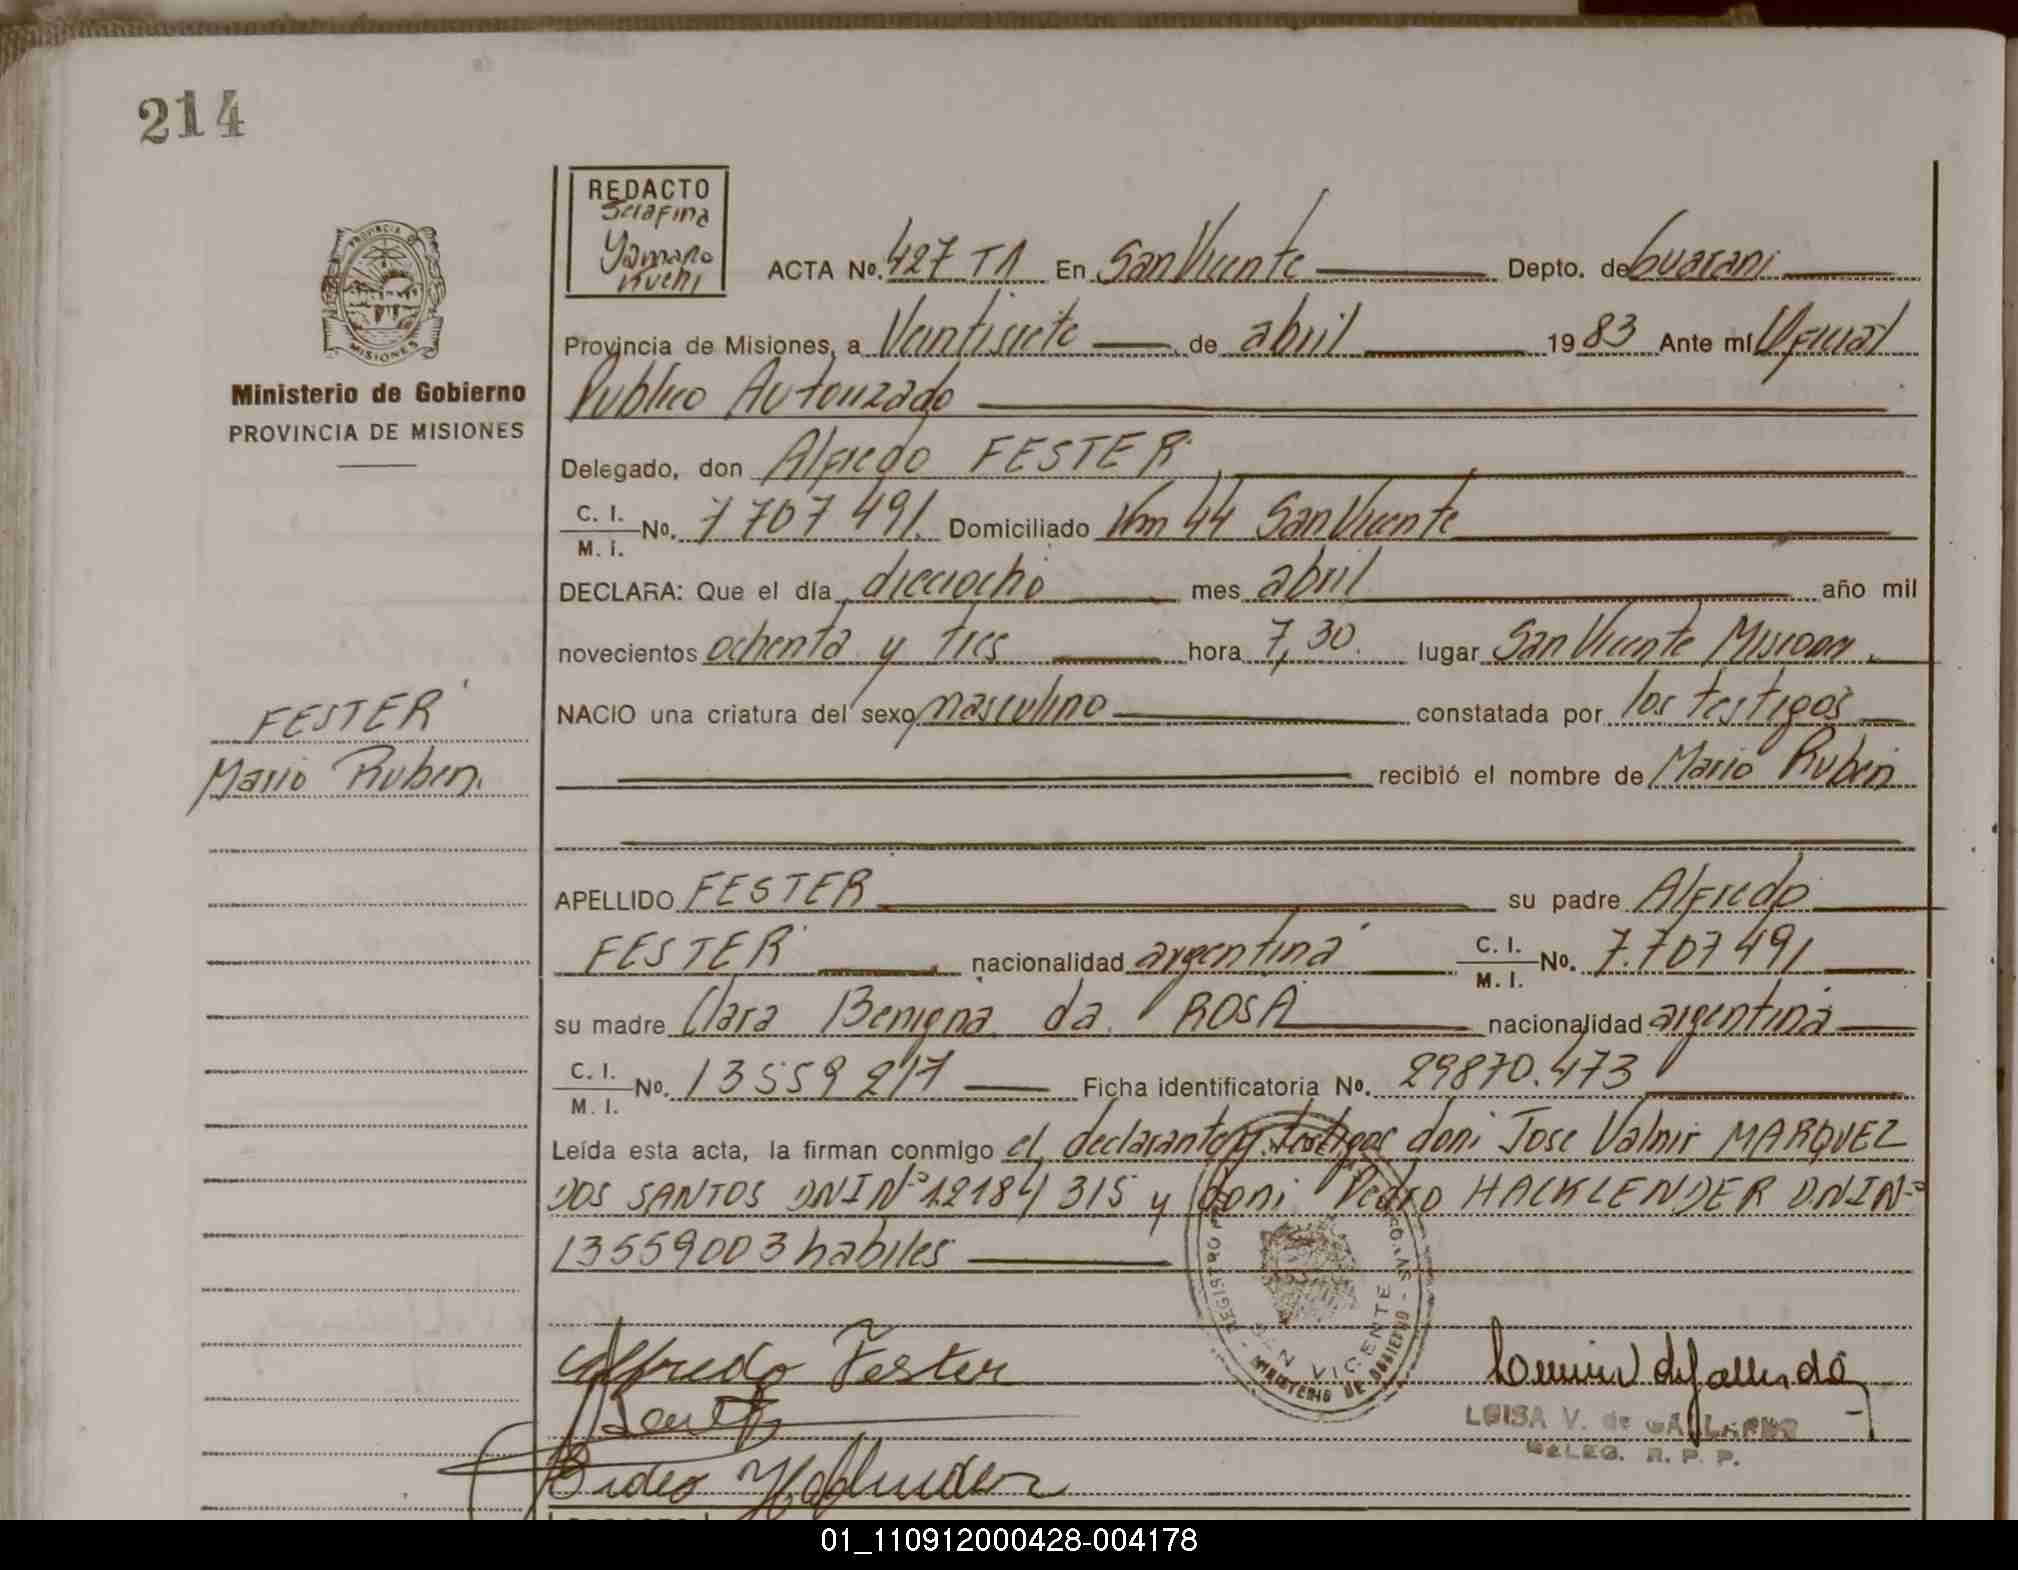 214
REDACTO
Serafina
Yamano
Kuehi
PROVINCIA DE
MISIONES
Ministerio de Gobierno
PROVINCIA DE MISIONES
ACTA No. 427 T1 En San Vicente Depto. de Guarani
Provincia de Misiones, a Veintisiete de abril 1983 Ante mí Oficial
Publico Autorizado
Delegado, don Alfredo FESTER
C. I.
M. I. No. 7707491. Domiciliado Km 44 San Vicente
DECLARA: Que el día dieciocho mes abril año mil
novecientos ochenta y tres hora 7,30. lugar San Vicente Misiones
NACIO una criatura del sexo masculino constatada por los testigos
FESTER
Mario Ruben.
recibió el nombre de Mario Ruben
APELLIDO FESTER su padre Alfredo
FESTER nacionalidad argentina C. I.
M. I. No. 7.707491
su madre Clara Benigna da ROSA nacionalidad argentina
C. I.
M. I. No. 13559217 Ficha identificatoria No. 29870.473
Leída esta acta, la firman conmigo el declarante y testigos doni Jose Valmir MARQUEZ
DOS SANTOS DNI Nº 12184315 y doni Pedro HACKLENDER D.N.I Nº
13559003 habiles
SAN VICENTE
MINISTERIO DE GOBIERNO
Alfredo Fester
LUISA V. de GALLARDO
DELEG. R. P. P.
01_110912000428-004178